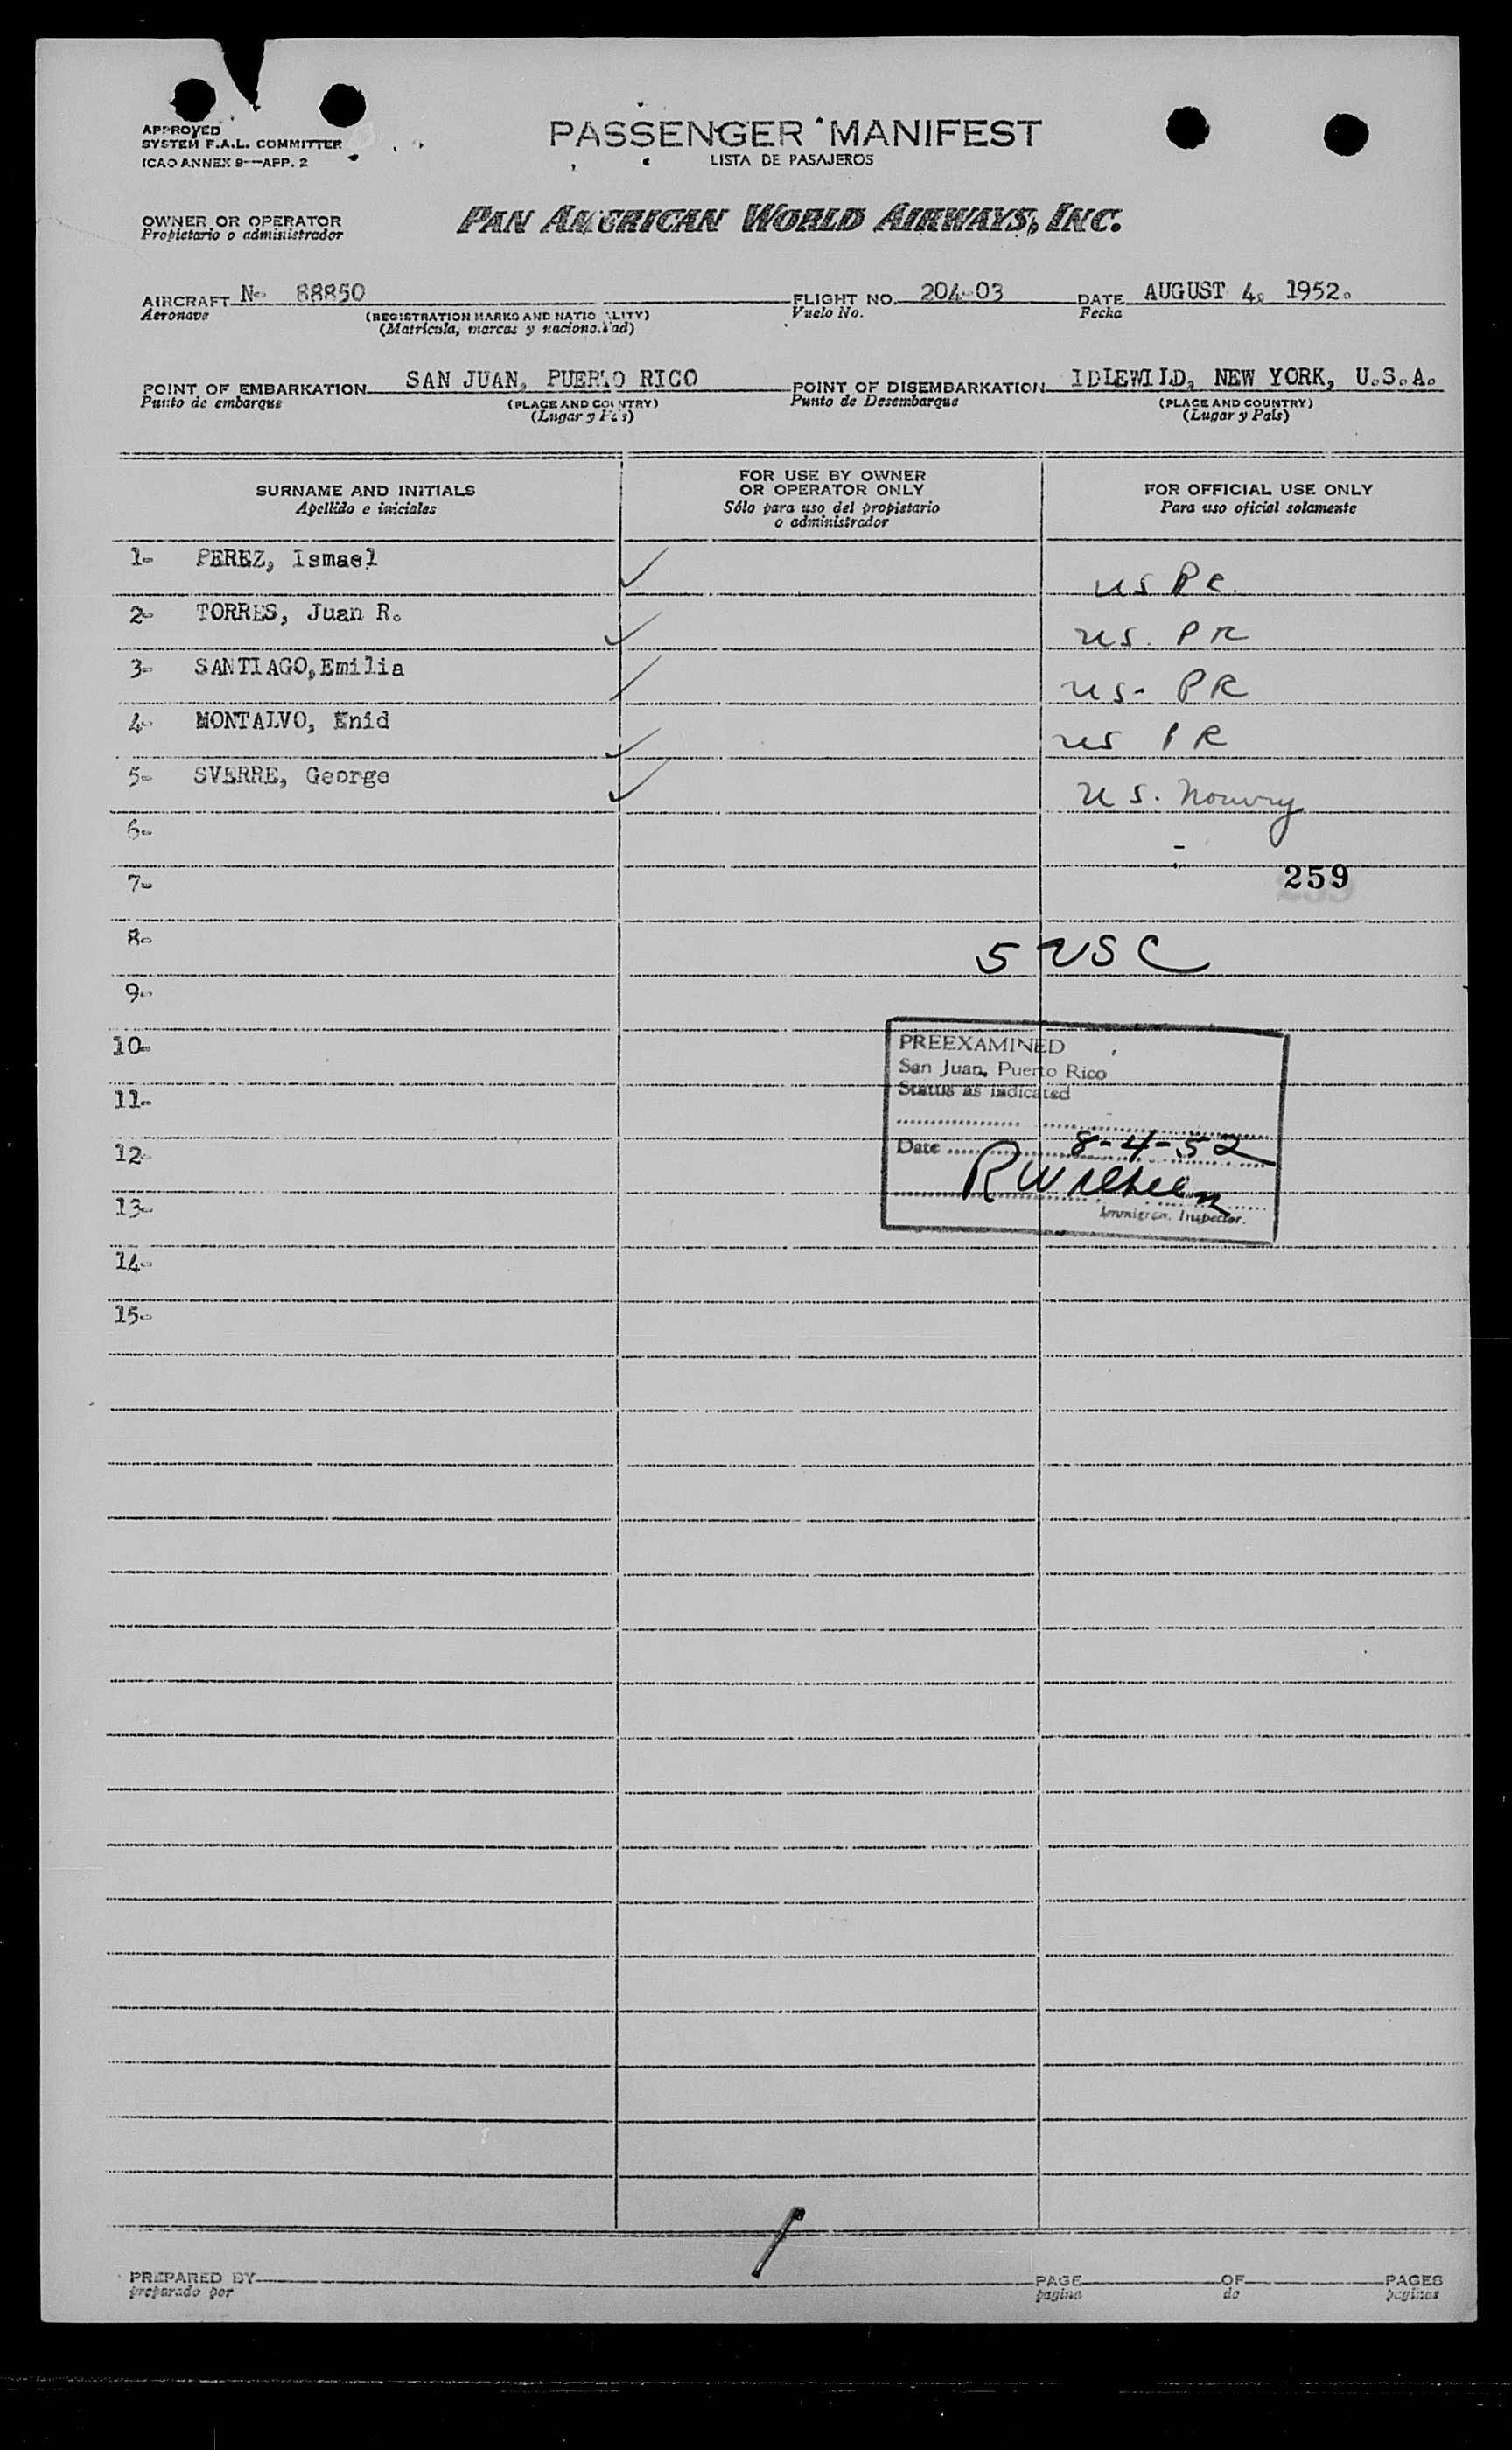 APPROVED
SYSTEM F.A.L. COMMITTEE
ICAO ANNEX 9—APP. 2
PASSENGER MANIFEST
LISTA DE PASAJEROS
OWNER OR OPERATOR
Propietario o administrador
PAN AMERICAN WORLD AIRWAYS, INC.
AIRCRAFT N- 88850
Aeronave
(REGISTRATION MARKS AND NATIONALITY)
(Matrícula, marcas y nacionalidad)
FLIGHT NO. 204-03
Vuelo No.
DATE AUGUST 4, 1952.
Fecha
POINT OF EMBARKATION SAN JUAN, PUERTO RICO
Punto de embarque
(PLACE AND COUNTRY)
(Lugar y País)
POINT OF DISEMBARKATION IDLEWILD, NEW YORK, U.S.A.
Punto de Desembarque
(PLACE AND COUNTRY)
(Lugar y País)
SURNAME AND INITIALS
Apellido e iniciales
FOR USE BY OWNER
OR OPERATOR ONLY
Sólo para uso del propietario
o administrador
FOR OFFICIAL USE ONLY
Para uso oficial solamente
1- PEREZ, Ismael ✓ US PR.
2- TORRES, Juan R. ✓ US. PR
3- SANTIAGO,Emilia ✓ US- PR
4- MONTALVO, Enid ✓ US PR
5- SVERRE, George ✓ US. Norwy
6-
7- 259
8- 5 USC
9-
10-
11-
12-
13-
14-
15-
PREEXAMINED
San Juan, Puerto Rico
Status as indicated
Date 8-4-52
Immigran. Inspector.
PREPARED BY
preparado por
PAGE OF PAGES
pagina de paginas